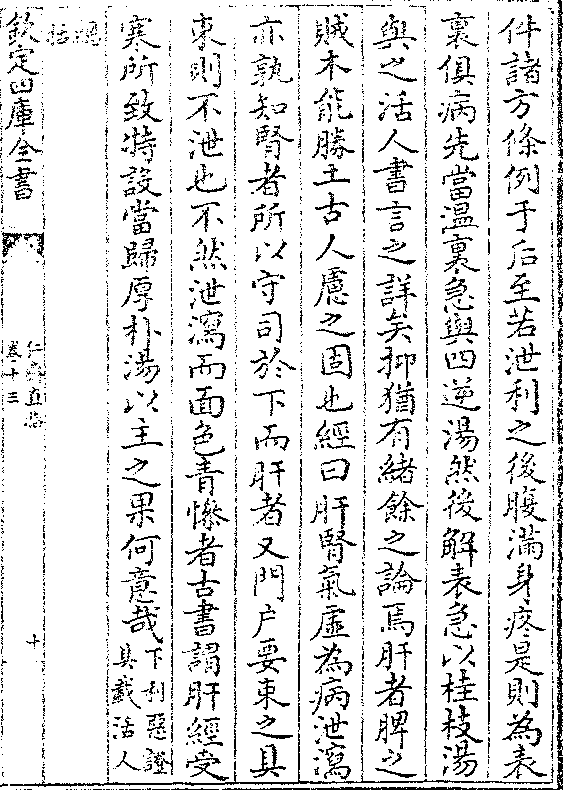 件諸方條例于后至若泄利之後腹滿身疼是則為表
裏俱病先當溫裏急與四逆湯然後解表急以桂枝湯
與之活人書言之詳矣抑猶有緒餘之論焉肝者脾之
賊木能勝土古人慮之固也經曰肝腎氣虛為病泄瀉
亦孰知腎者所以守司於下而肝者又門户要束之具
束則不泄也不然泄瀉而面色青慘者古書謂肝經受
寒所致特設當歸厚朴湯以主之果何意哉下利惡證
具載活人
總
括
欽定四庫全書
仁齋直指
卷十三
十